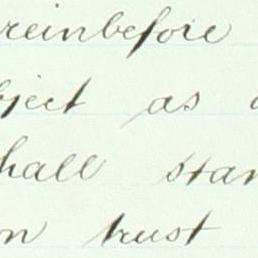 reinbefore
bject as a
hall stan
on trust